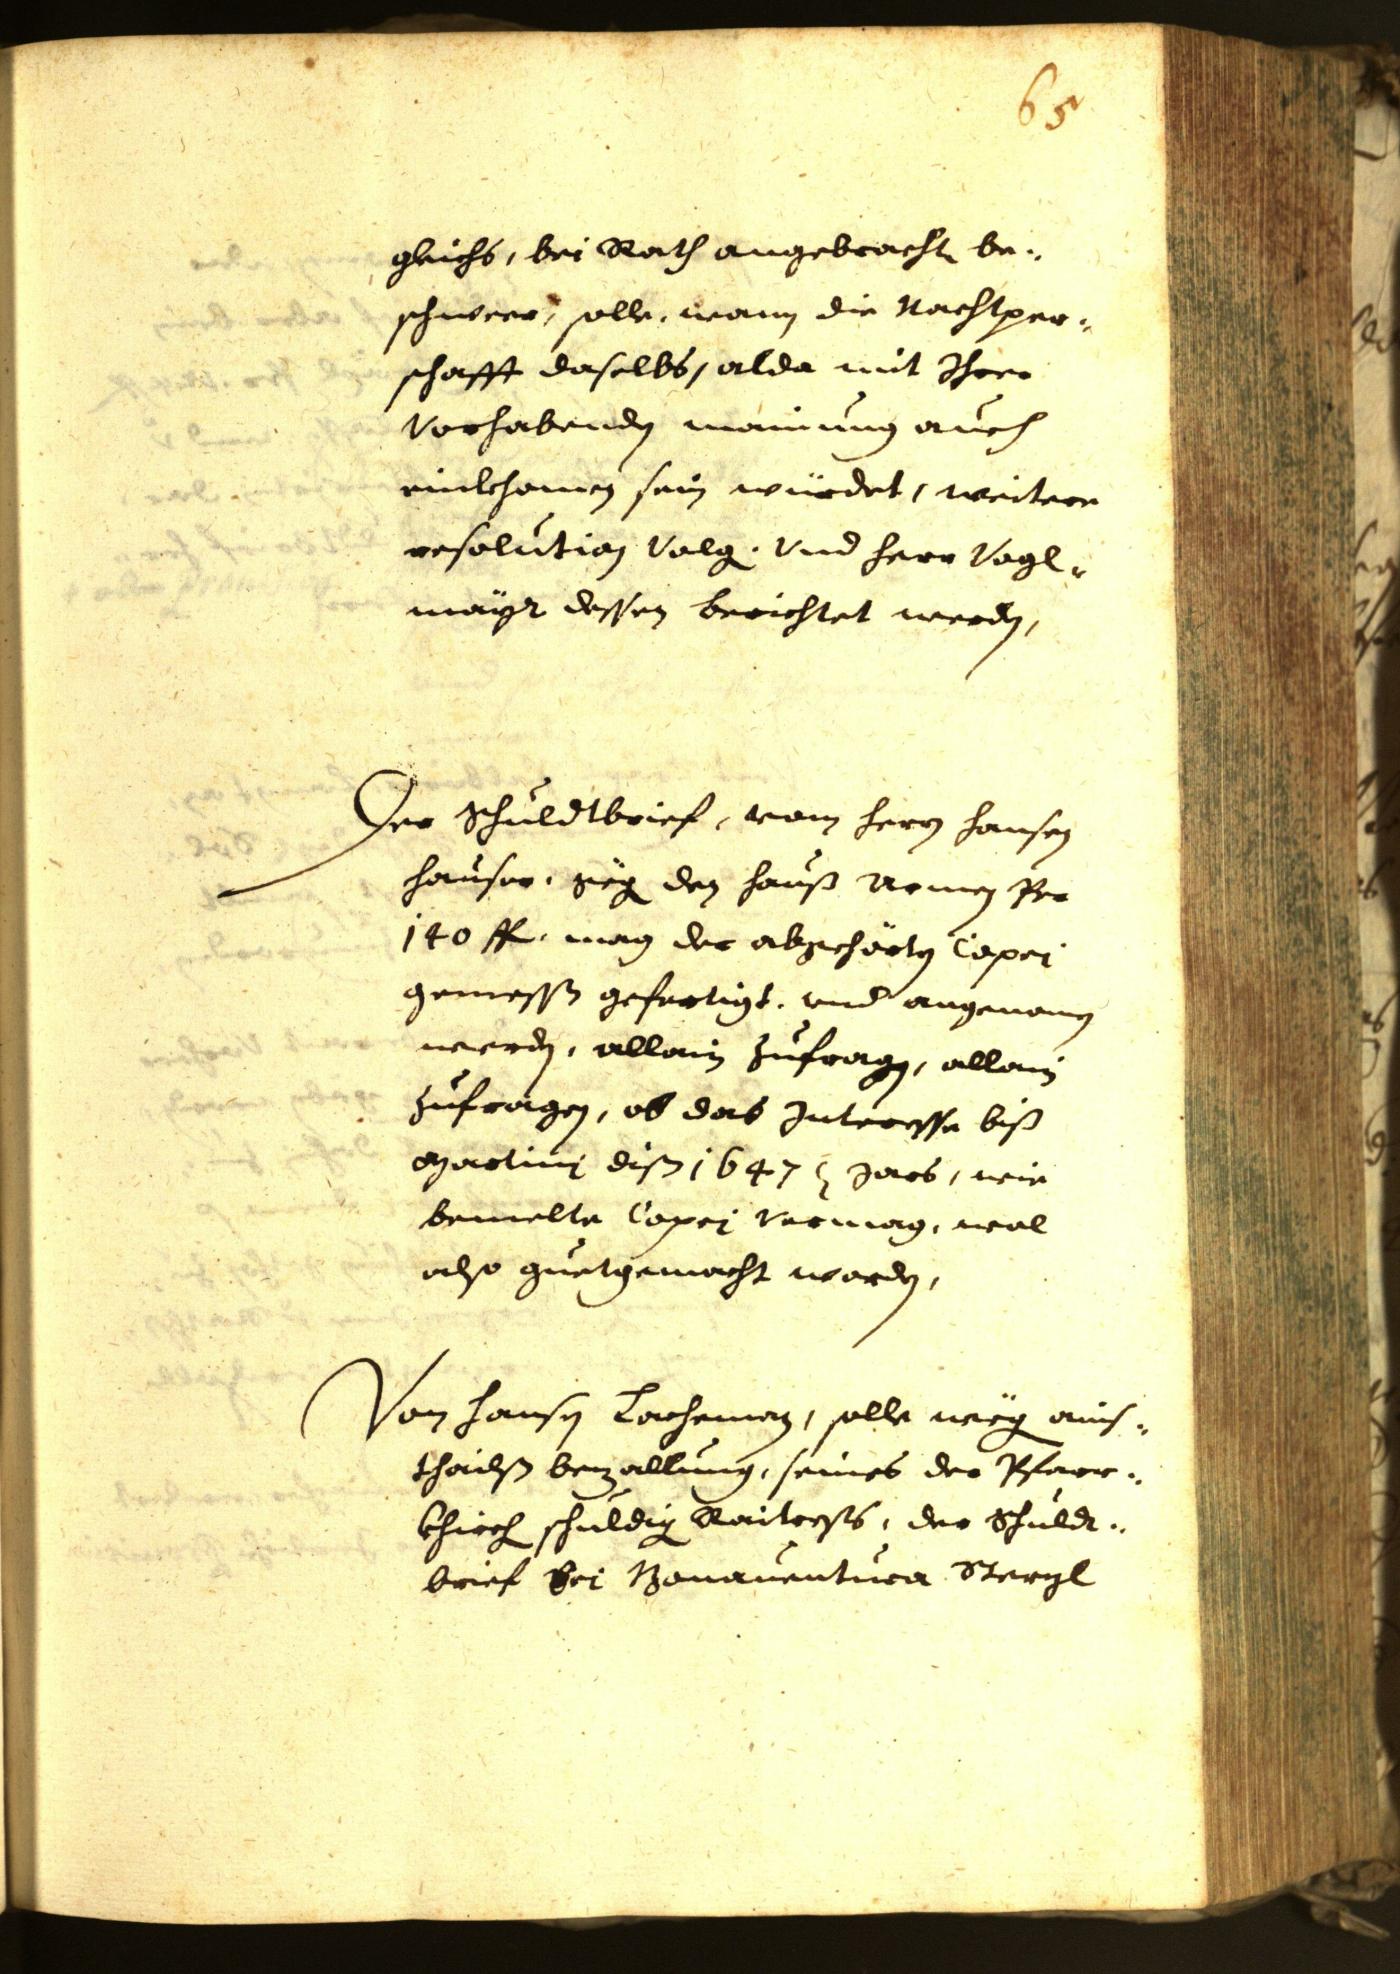 65
gleichs, bei Rath angebracht be¬
schweer, solle, wann die Nachtper¬
schafft daselbs, alda mit Ihrer
Vorhabenden mainung auch
einkhomen sein würdet, weitere
resolution Volg. Vnd herr Vogl¬
mayr dessen berichtet werden,
Der Schuldtbrief, vom herrn hansen
hauser, geg den hauß Armen Per
140 fl. mag der abgehörten Copej
gemesß gefertigt. vnd angenomen
werden, allain zufragen, allain
zufragen, ob das Interesse biß
Martinj diß 1647 Jars, wie
bemelte Copej Vermag, wol
also guetgemacht worden,
Von hansen Lachman, solle weeg ains¬
thailß bezallung, seines der Pfarr¬
khirch schuldig Raitrests, der Schuldt¬
brief bei Bonauentura